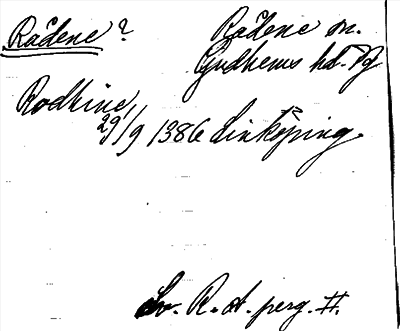 Radene? Radene sn.
Gudhems hd. Vg
Rodhine
29/9 1386 Linköping.
Sv. R. A. perg. II.